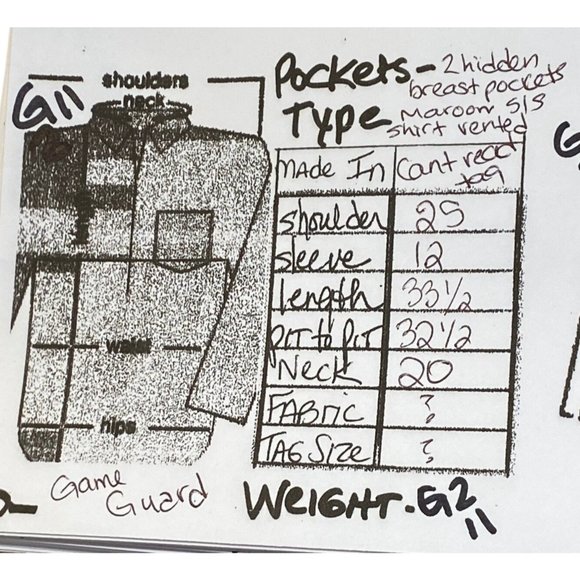 shoulders
neck
G11
Pockets - 2 hidden
breast pockets
Type Maroon S/S
shirt vented
Made In Cant read
tag
shoulder 25
sleeve 12
length 33 1/2
PIT to PIT 32 1/2
Neck 20
FABric ?
TAG Size ?
waist
hips
Game
Guard
Weight. G2
11